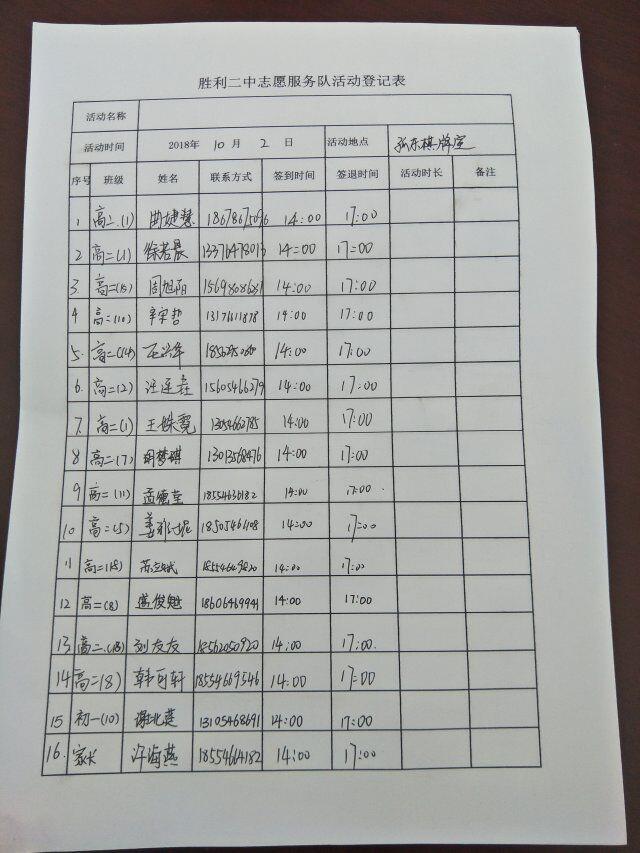 胜利二中志愿服务队活动登记表
活动名称
活动时间 2018年 10 月 2 日 活动地点 孤东棋牌室
序号 班级 姓名 联系方式 签到时间 签退时间 活动时长 备注
1 高二.(1) 曲婕慧 18678675096 14:00 17:00
2 高二(1) 徐若晨 14:00 17:00
3. 高二(15) 周旭阳 14:00 17:00
4 高二(10) 辛宗哲 14:00 17:00
5. 高二(14) 14:00 17:00
6. 高二(2) 15605466279 14:00 17:00
7. 高二(1) 王姝霓 14:00 17:00
8 高二(7) 胡梦琪 13013568476 14:00 17:00
9 高二(11) 孟德奎 14:00 17:00
10 高二(5) 14:00 17:00
11 高二(18) 14:00 17:00
12 高二(8) 盛俊魁 18606469941 14:00 17:00
13 高二.(18) 刘友友 18562050920 14:00 17:00
14 高二(8) 韩可轩 18554669546 14:00 17:00
15 初一(10) 谢北莲 13105468691 14:00 17:00
16. 家长 许海燕 18554664182 14:00 17:00